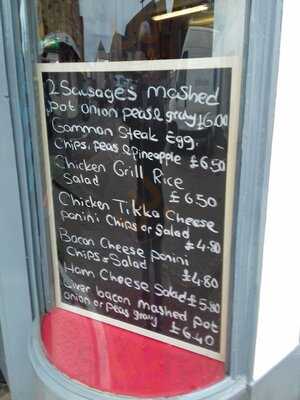 2 Sausages mashed
pot onion peas & gravy £6.00
Gammon Steak Egg
Chips, peas & pineapple £6.50
Chicken Grill Rice
Salad £6.50
Chicken Tikka Cheese
panini Chips or Salad
£4.80
Bacon Cheese panini
Chips or Salad
£4.80
Ham Cheese Salad £5.80
Liver bacon mashed pot
onion or peas gravy
£6.40